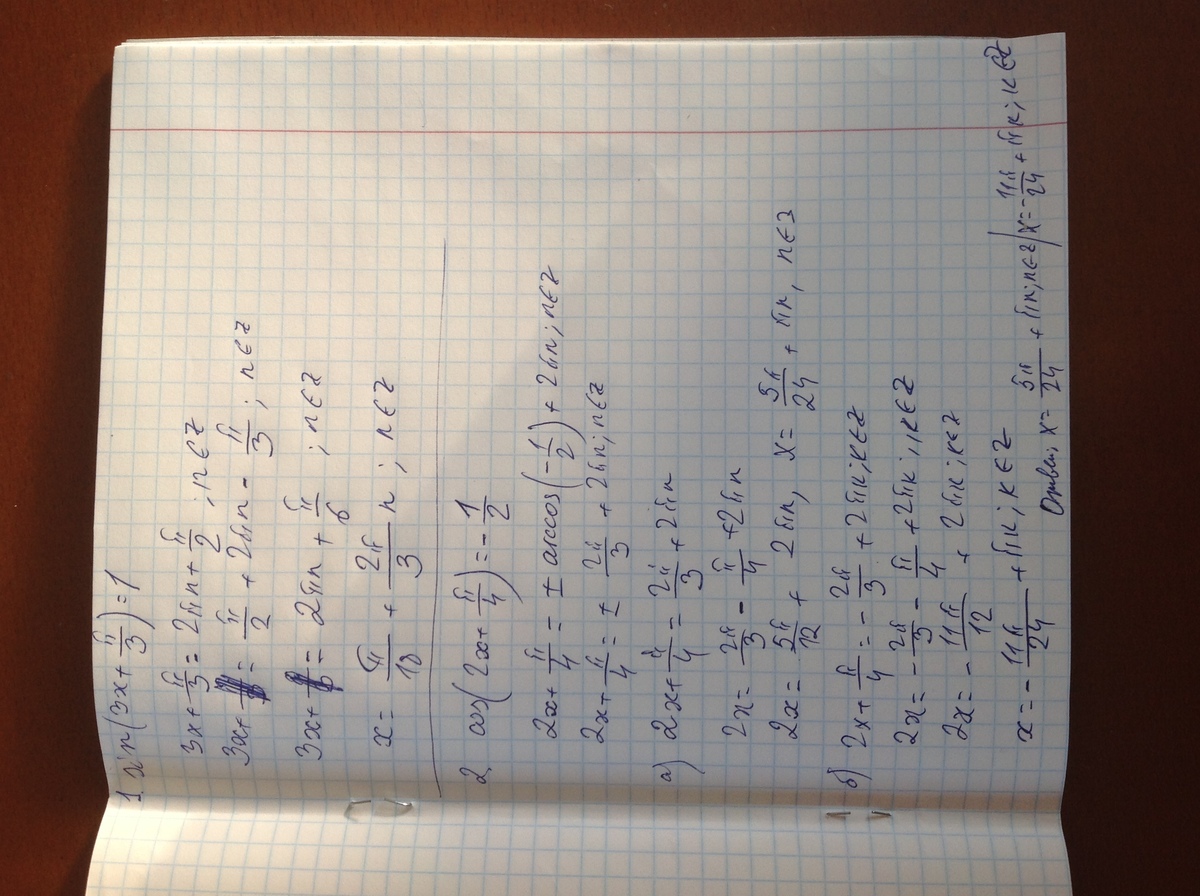 1. sin(3x + π/3) = 1
3x + π/3 = 2πn + π/2 ; n∈Z
3x + = π/2 + 2πn - π/3 ; n∈Z
3x + = 2πn + π/6 ; n∈Z
x = π/18 + 2π/3 n ; n∈Z
2. cos(2x + π/4) = -1/2
2x + π/4 = ± arccos(-1/2) + 2πn ; n∈Z
2x + π/4 = ± 2π/3 + 2πn ; n∈Z
а) 2x + π/4 = 2π/3 + 2πn
2x = 2π/3 - π/4 + 2πn
2x = 5π/12 + 2πn, x = 5π/24 + πn, n∈Z
б) 2x + π/4 = - 2π/3 + 2πk ; k∈Z
2x = - 2π/3 - π/4 + 2πk ; k∈Z
2x = - 11π/12 + 2πk ; k∈Z
x = - 11π/24 + πk ; k∈Z
Ответ: x = 5π/24 + πn ; n∈Z / x = - 11π/24 + πk ; k∈Z